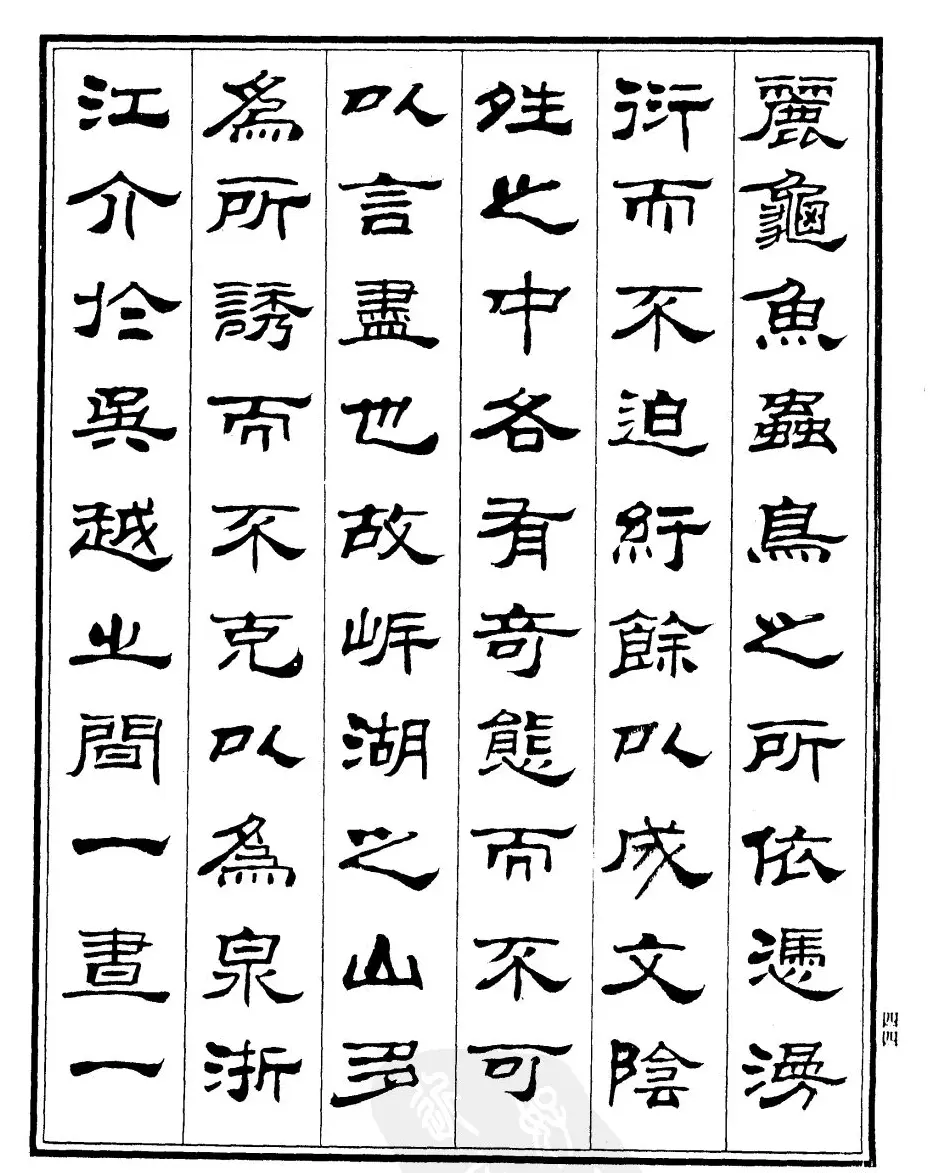 麗龜魚蟲鳥之所依憑漫
衍而不迫紆餘以成文陰
夝之中各有奇態而不可
以言盡也故岸湖之山多
為所誘而不克以為泉浙
江介於吳越之間一晝一
四四